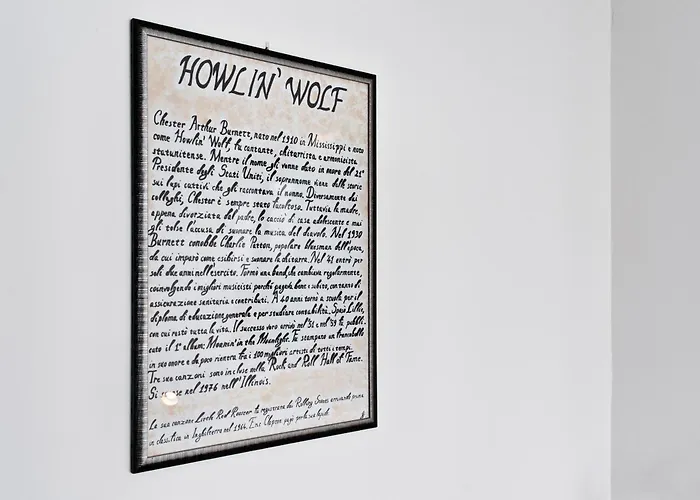 HOWLIN' WOLF
Chester Arthur Burnett, nato nel 1910 in Mississippi e noto
come Howlin' Wolf, fu cantante, chitarrista e armonicista
statunitense. Mentre il nome gli venne dato in onore del 21°
Presidente degli Stati Uniti, il soprannome viene dalle storie
sui lupi cattivi che gli raccontava il nonno. Diversamente dai
colleghi, Chester è sempre stato facoltoso. Tuttavia la madre,
appena divorziata dal padre, lo cacciò di casa adolescente e mai
gli tolse l'accusa di suonare la musica del diavolo. Nel 1930
Burnett conobbe Charlie Patton, popolare bluesman dell'epoca,
da cui imparò come esibirsi e suonare la chitarra. Nel 41 entrò per
soli due anni nell'esercito. Formò una band, che cambiava regolarmente,
coinvolgendo i migliori musicisti perché pagava bene e subito, con tanto di
assicurazione sanitaria e contributi. A 40 anni tornò a scuola per il
diploma di educazione generale e per studiare contabilità. Sposò Lillie,
con cui restò tutta la vita. Il successo vero arrivò nel '51 e nel '59 fu pubbli-
cato il 1° album: Moanin' in the Moonlight. Fu stampato un francobollo
in suo onore e da poco rientra tra i 100 migliori artisti di tutti i tempi.
Tre sue canzoni sono incluse nella Rock and Roll Hall of Fame.
Si spense nel 1976 nell'Illinois.
La sua canzone Little Red Rooster fu registrata dai Rolling Stones arrivando prima
in classifica in Inghilterra nel 1964. Eric Clapton pagò per la sua lapide.